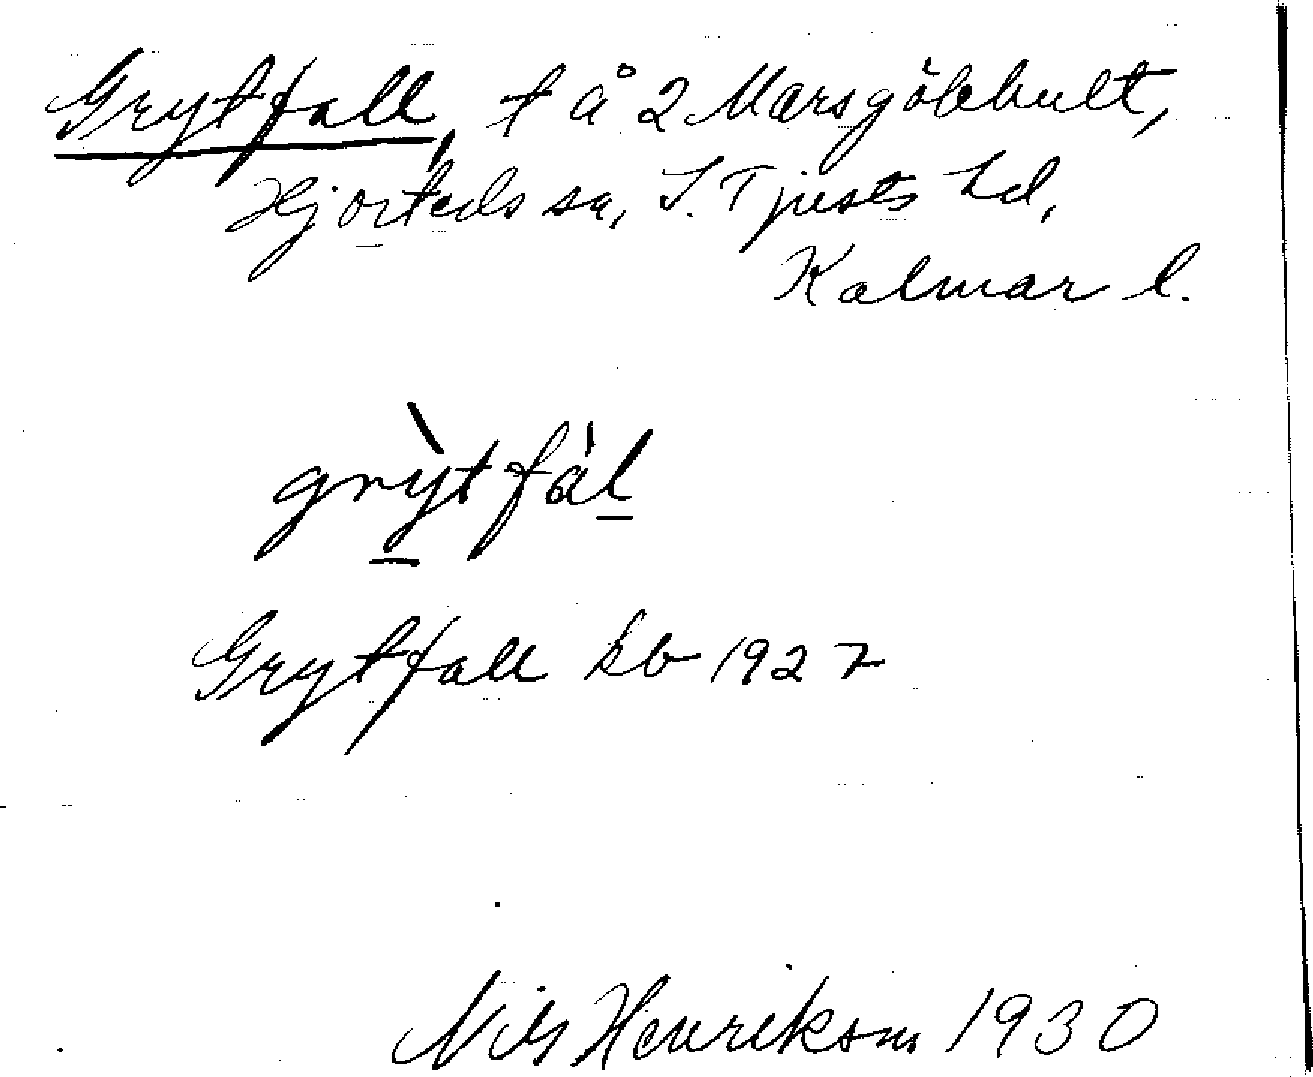 Grytfall, t å 2 Marsgölehult,
Hjorteds sn, S. Tjusts hd,
Kalmar l.
grỳtfàl
Grytfall kb 1927
Nils Henrikson 1930